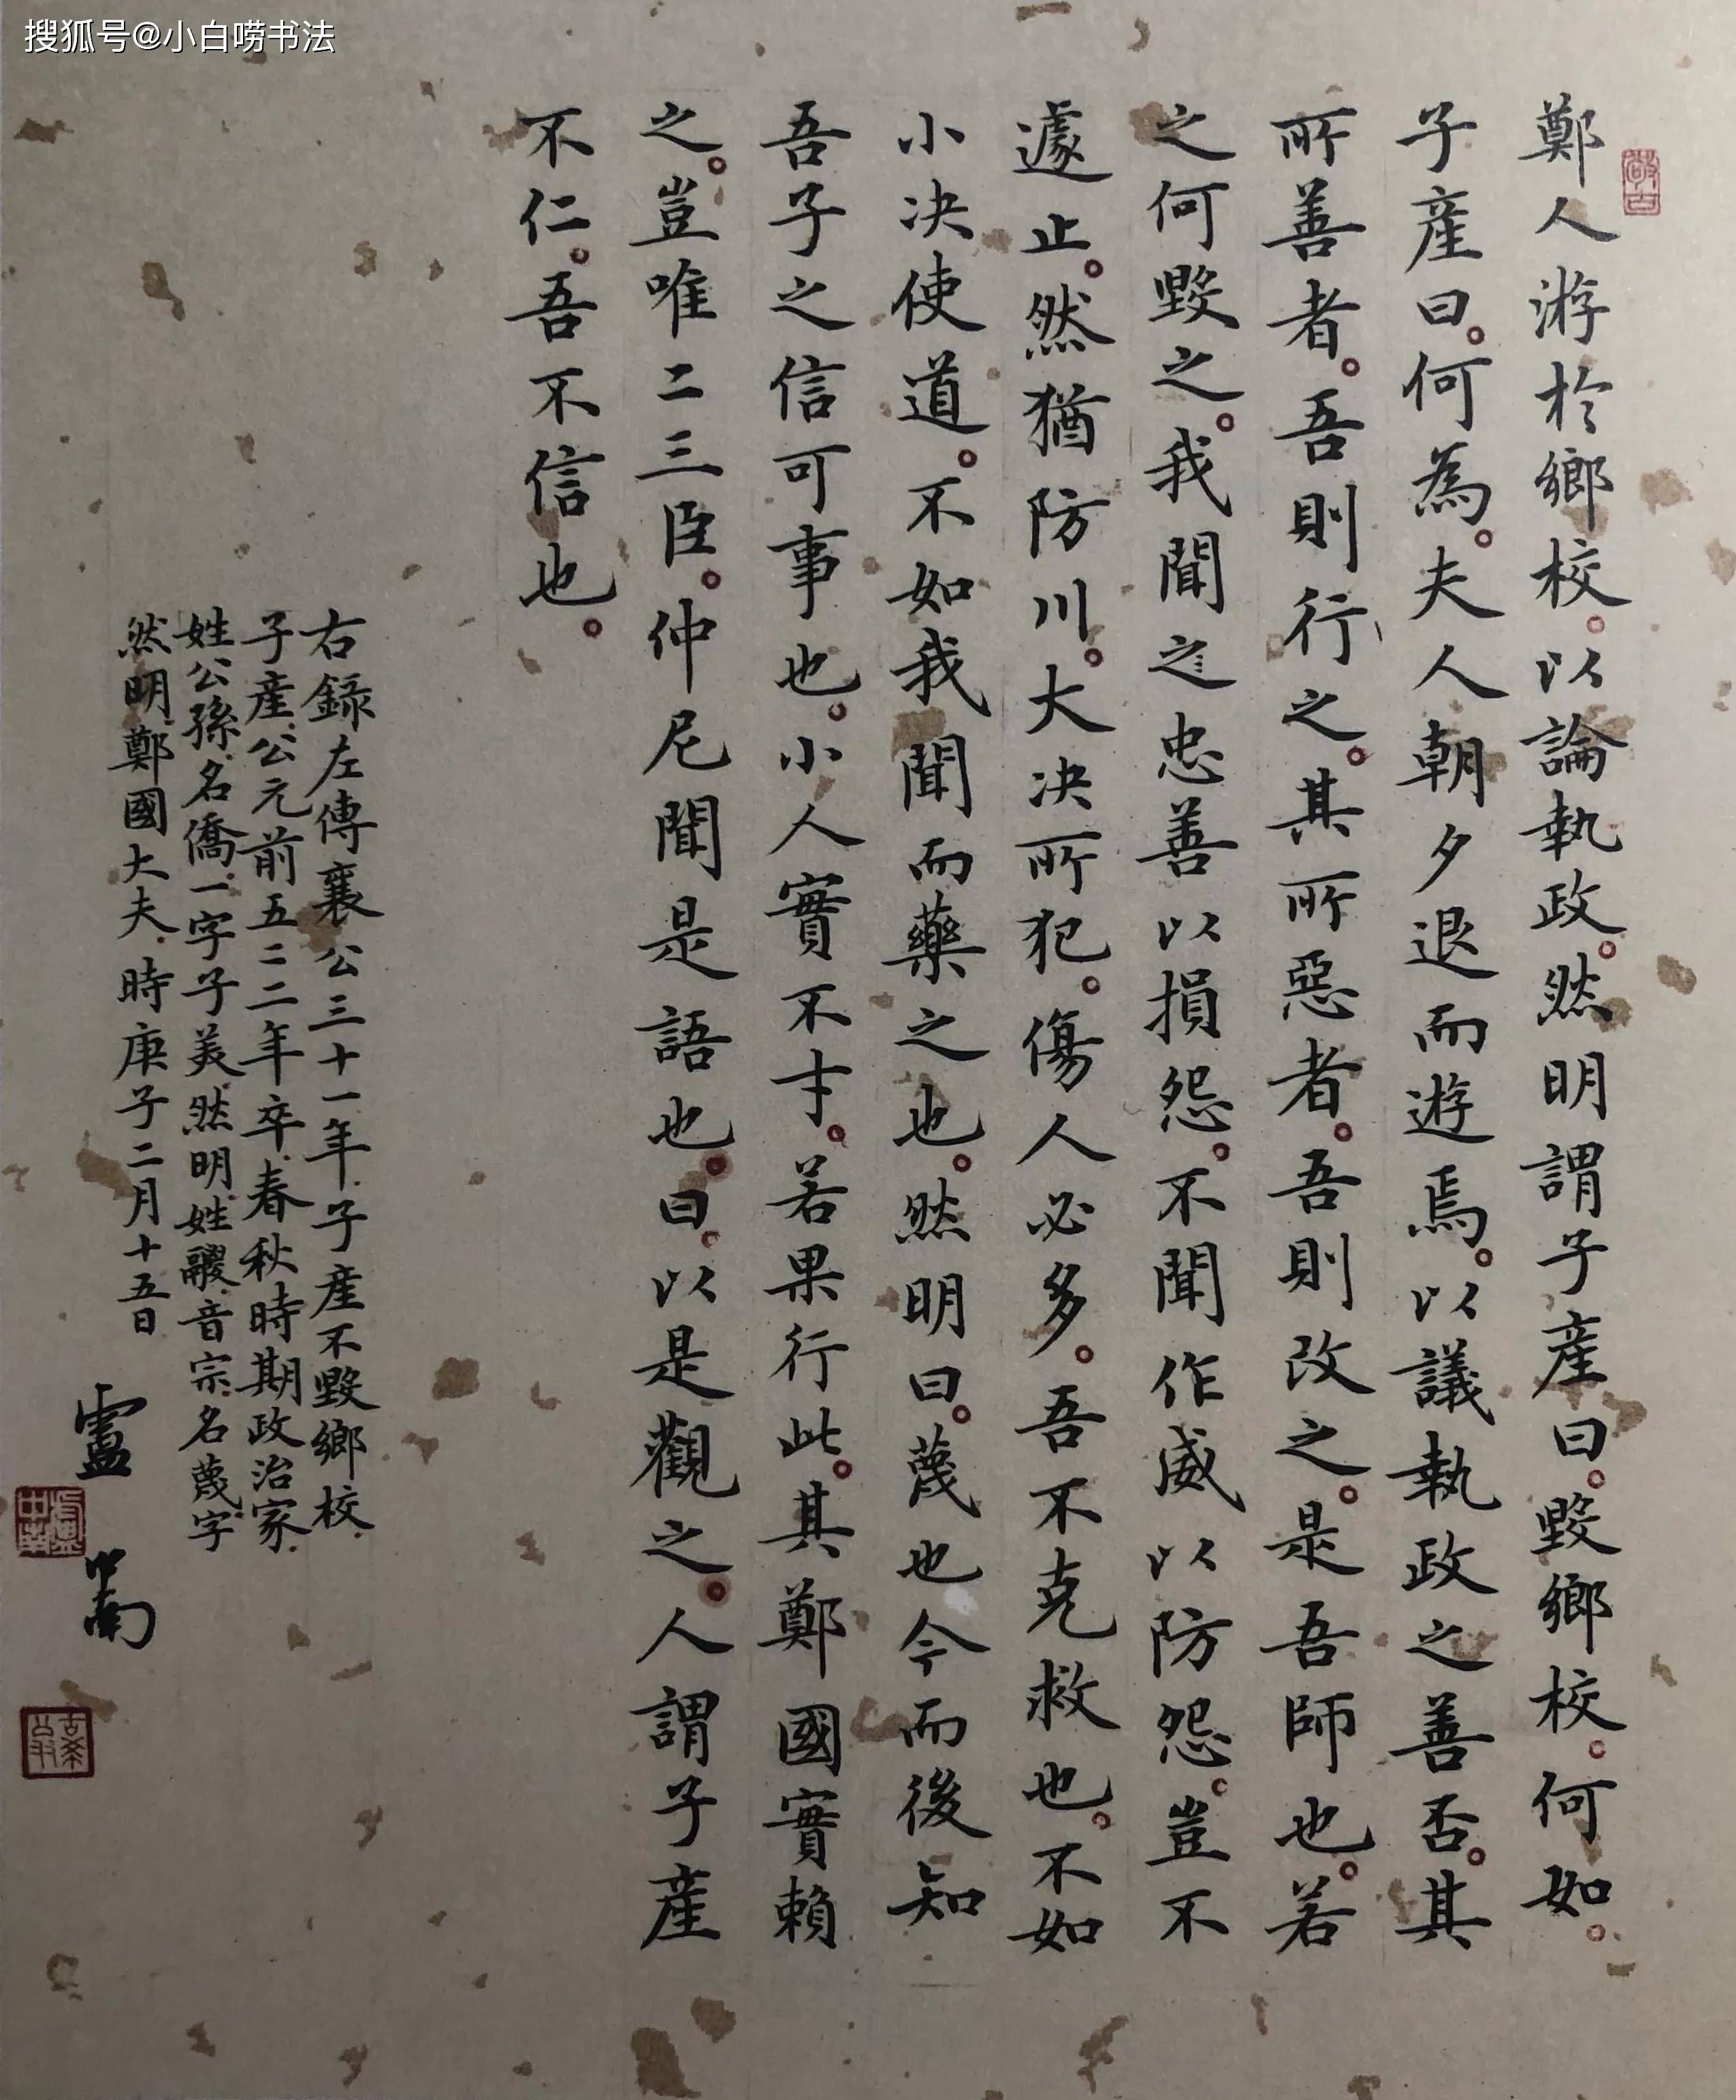 搜狐号@小白唠书法
鄭人游於鄉校。以論執政。然明謂子產曰。毀鄉校。何如。
子產曰。何為。夫人朝夕退而遊焉。以議執政之善否。其
所善者。吾則行之。其所惡者。吾則改之。是吾師也。若
之何毀之。我聞之忠善以損怨。不聞作威以防怨。豈不
遽止。然猶防川。大决所犯。傷人必多。吾不克救也。不如
小决使道。不如我聞而藥之也。然明曰。蔑也今而後知
吾子之信可事也。小人實不才。若果行此。其鄭國實賴
之。豈唯二三臣。仲尼聞是語也。曰。以是觀之。人謂子產
不仁。吾不信也。
右録左傳襄公三十一年.子產不毀鄉校.
子產.公元前五二二年卒.春秋時期政治家.
姓公孫.名僑.一字子美.然明.姓鬷.音宗.名蔑.字
然明.鄭國大夫.時庚子二月十五日
盧中南
盧中南